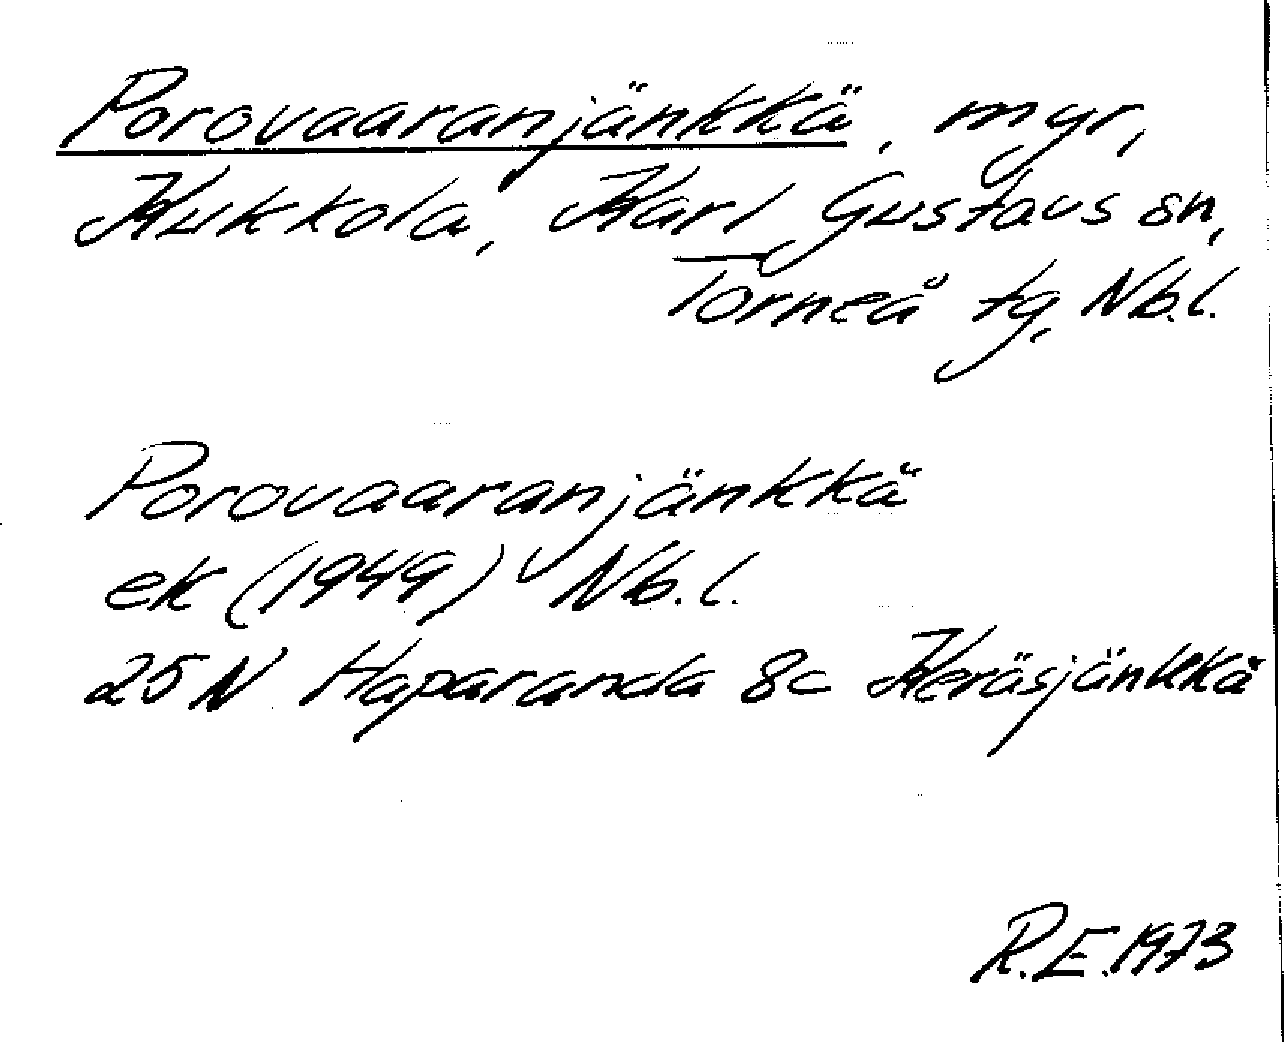 Porovaaranjänkkä, myr,
Kukkola, Karl Gustavs sn,
Torneå tg, Nb.l.
Porovaaranjänkkä
ek (1949) Nb.l.
25N Haparanda 8c Keräsjänkkä
R.E.1973